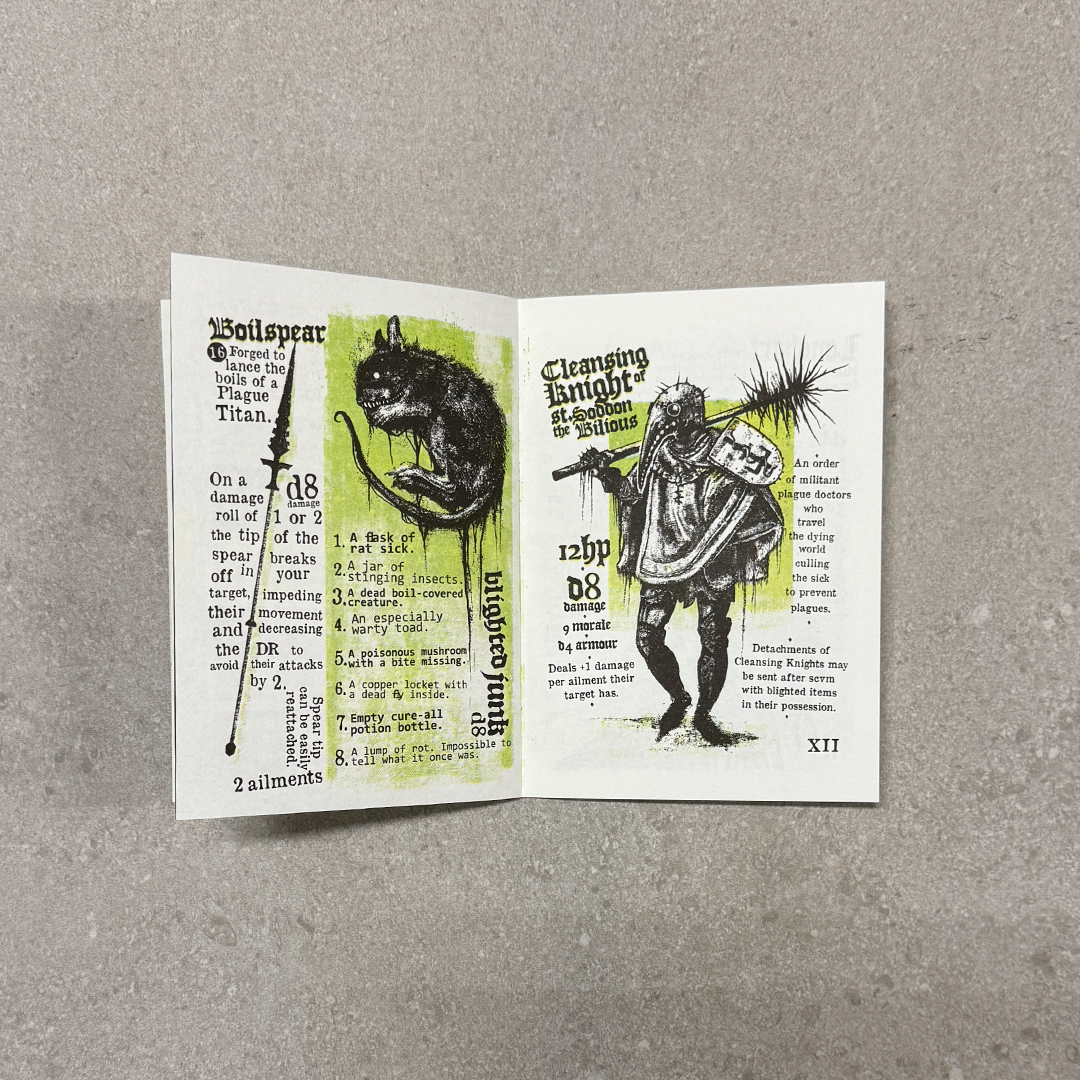 Boilspear
16 Forged to
lance the
boils of a
Plague
Titan.
d8
damage
On a
damage
roll of 1 or 2
the tip of the
spear breaks
off in your
target, impeding
their movement
and decreasing
the DR to
avoid their attacks
by 2.
Spear tip
can be easily
reattached.
2 ailments
blighted junk
d8
1. A flask of
rat sick.
2. A jar of
stinging insects.
3. A dead boil-covered
creature.
4. An especially
warty toad.
5. A poisonous mushroom
with a bite missing.
6. A copper locket with
a dead fly inside.
7. Empty cure-all
potion bottle.
8. A lump of rot. Impossible to
tell what it once was.
Cleansing
Knight of
st. Soddon
the Bilious
12hp
d8
damage
9 morale
d4 armour
Deals +1 damage
per ailment their
target has.
An order
of militant
plague doctors
who
travel
the dying
world
culling
the sick
to prevent
plagues.
Detachments of
Cleansing Knights may
be sent after scvm
with blighted items
in their possession.
XII